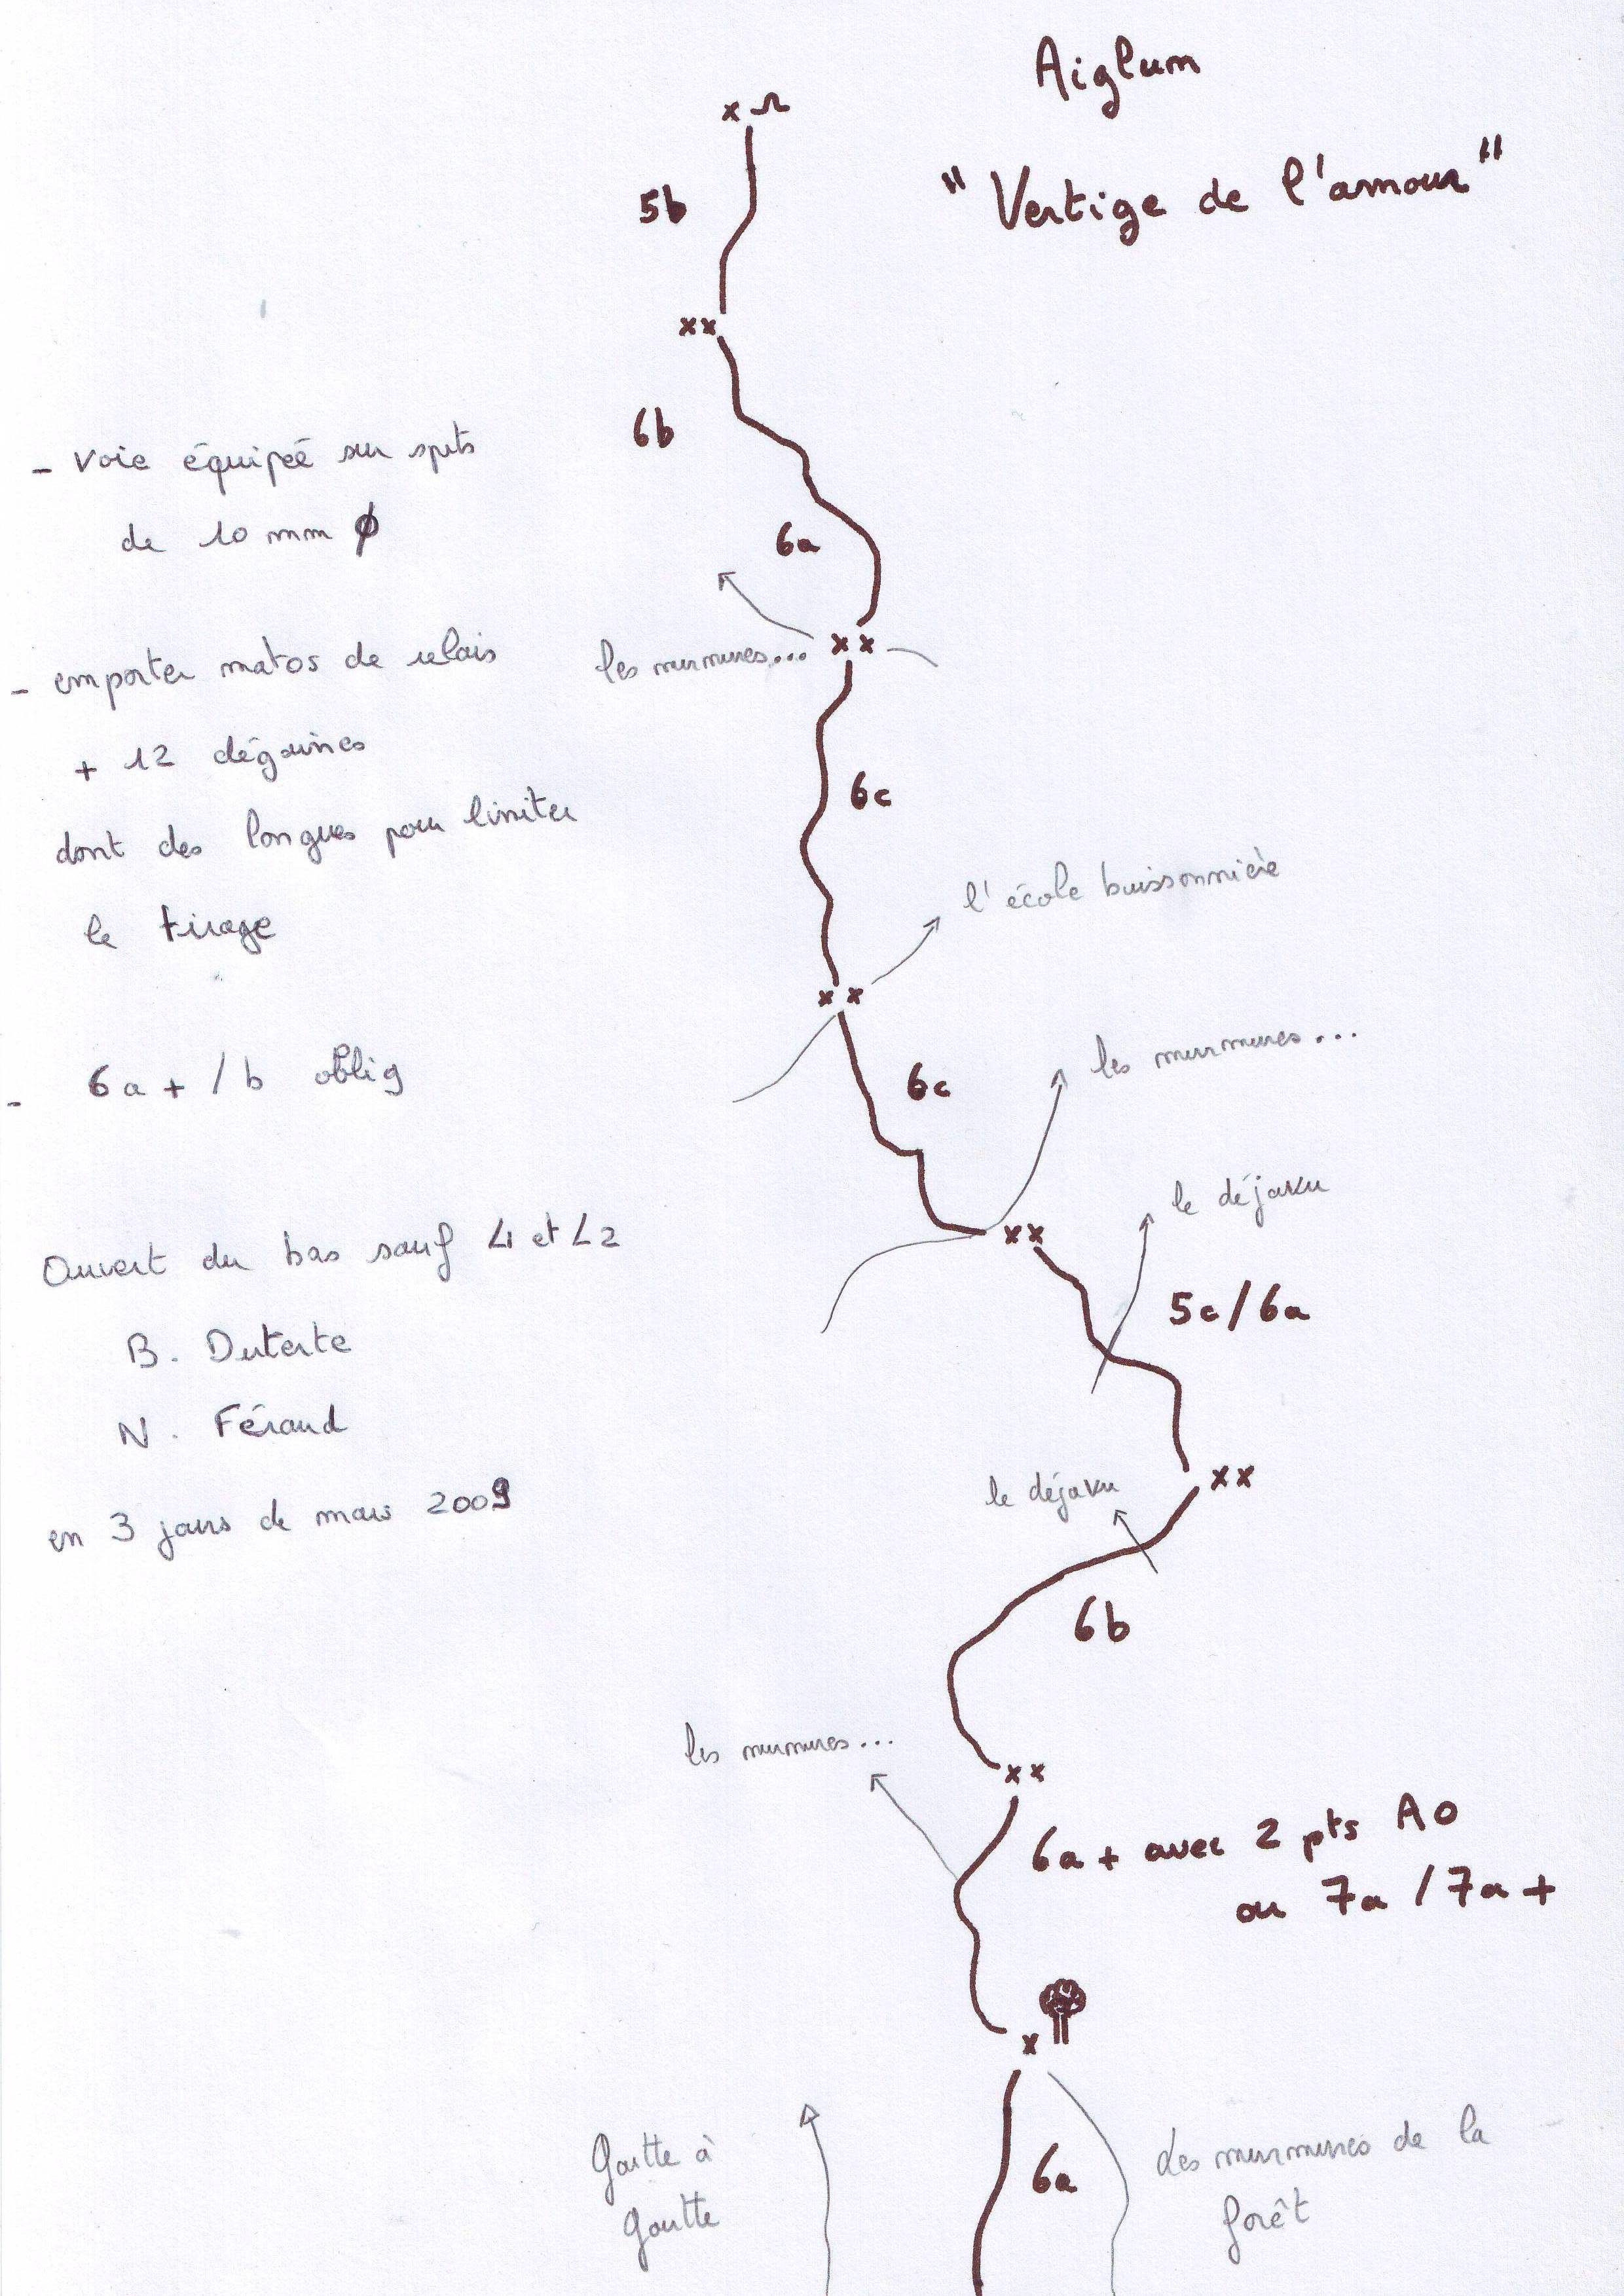 Aiglun
" Vertige de l'amour "
5b
6b
- voie équipée sur spits
de 10 mm Ø
6a
les murmures...
- emporter matos de relais
+ 12 dégaines
dont des longues pour limiter
le tirage
6c
l'école buissonnière
- 6a+/b oblig
6c
les murmures...
le déjavu
Ouvert du bas sauf L1 et L2
B. Duterte
N. Féraud
en 3 jours de mars 2009
5c/6a
le déjavu
6b
les murmures...
6a+ avec 2 pts A0
ou 7a / 7a+
Goutte à
goutte
6a
Les murmures de la
forêt